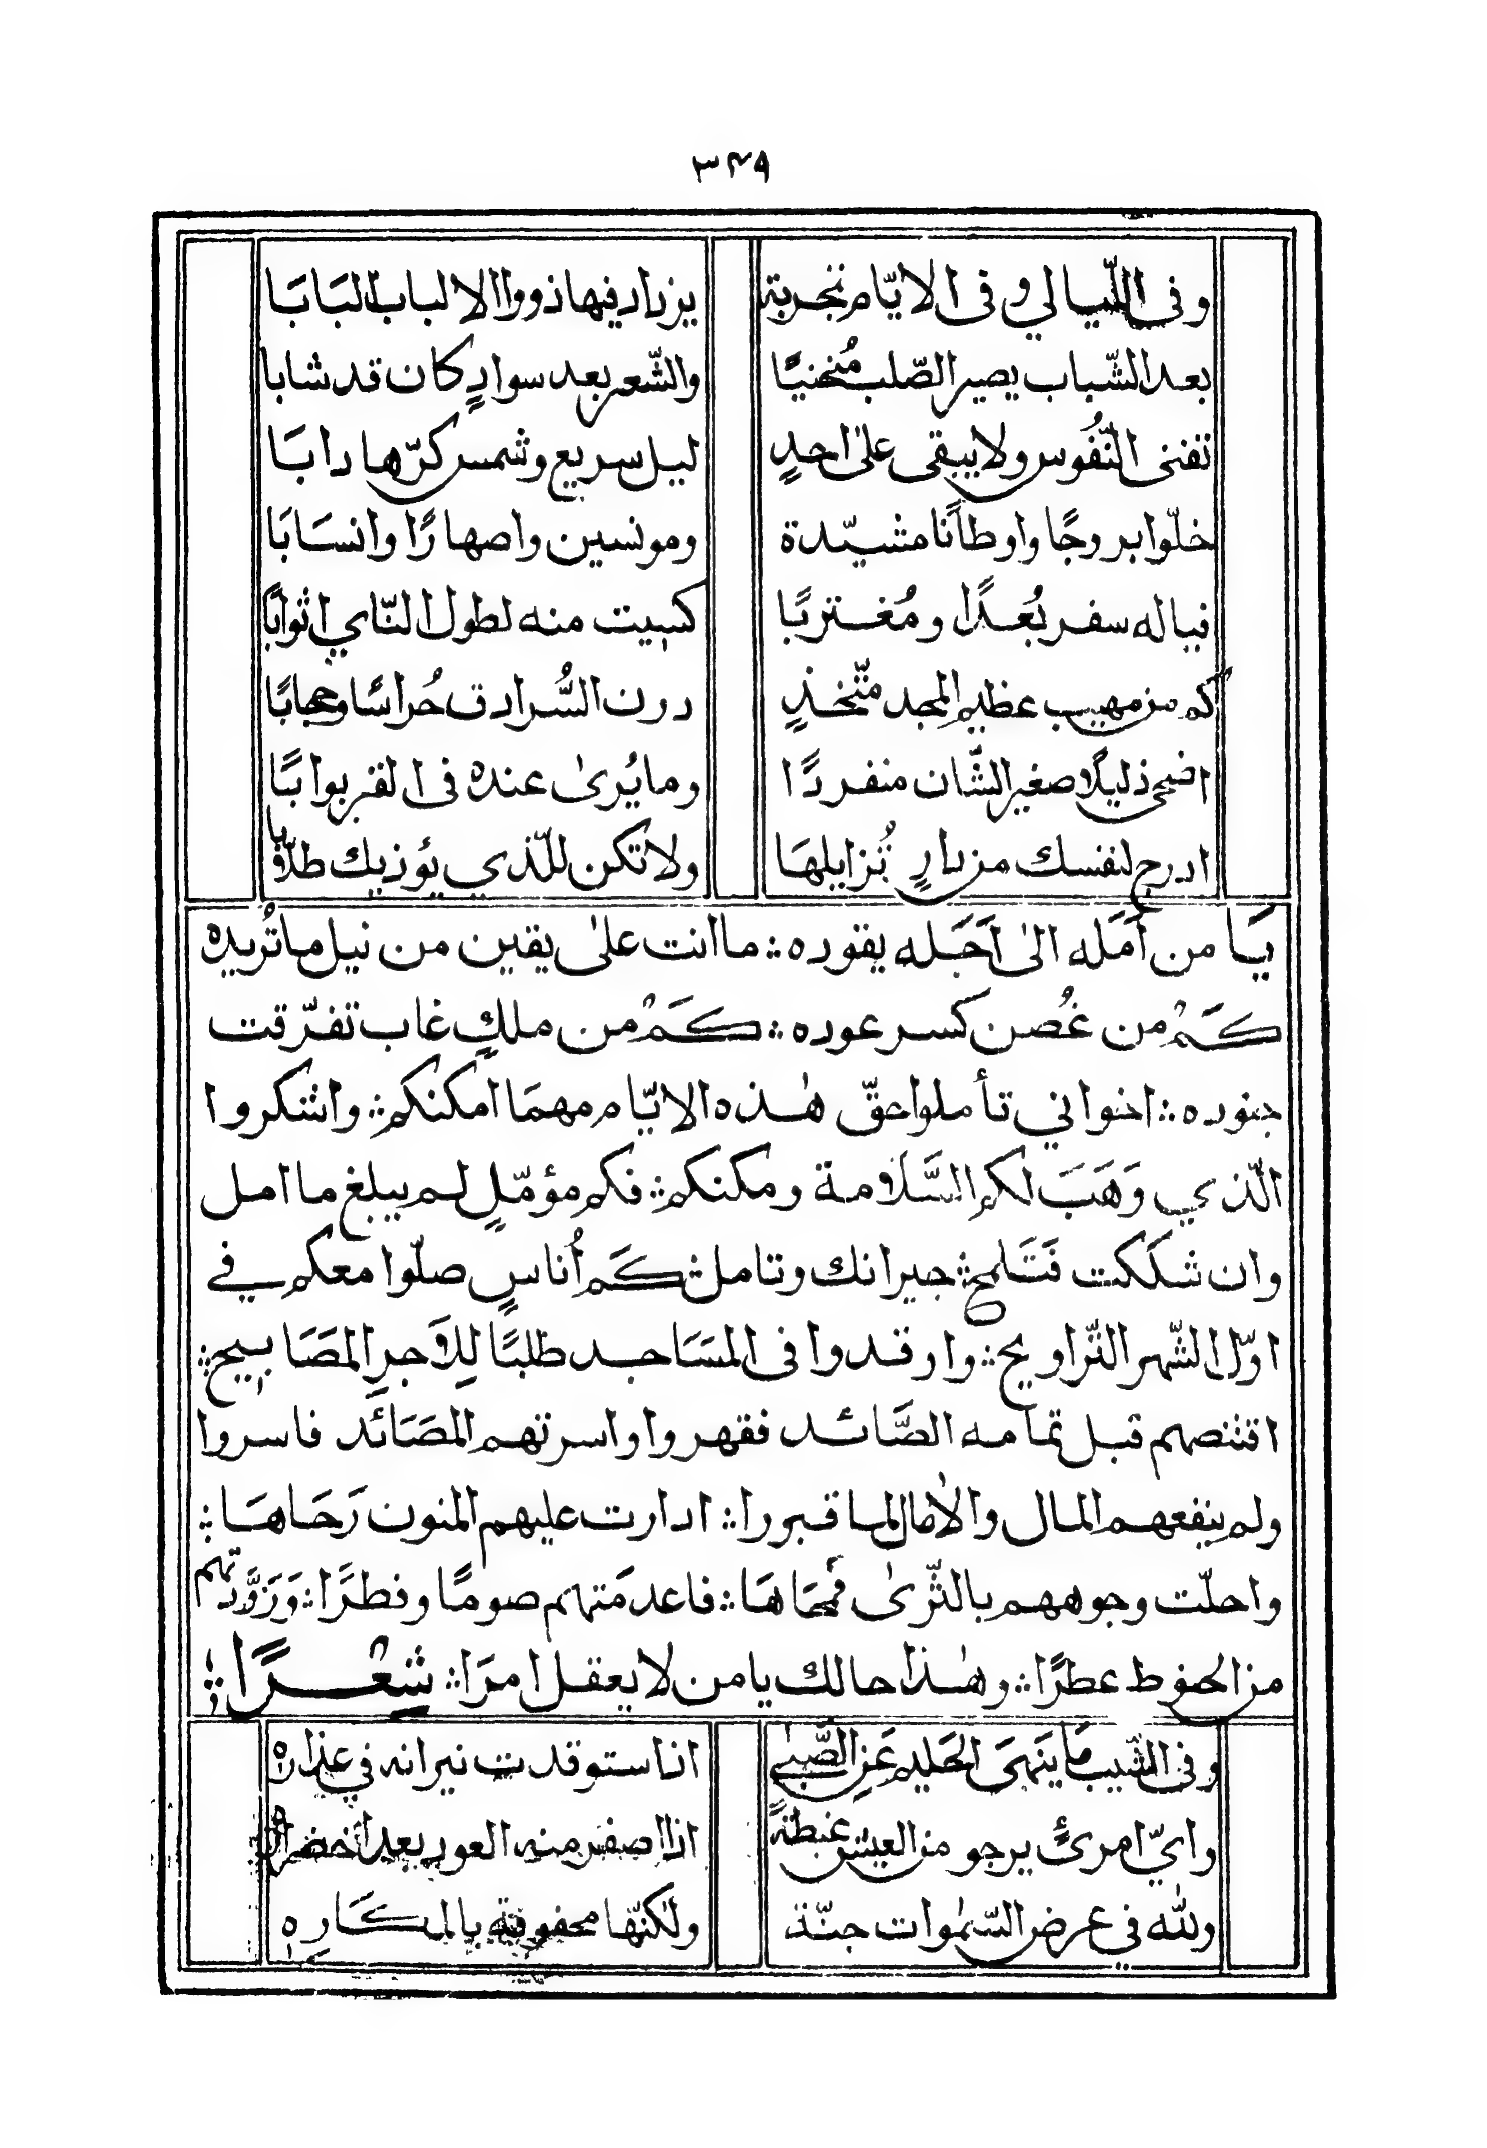 ٣٤٩
وفى اللّيالي وفى الايّام تجربة يزداد فيها ذووا الالباب البَابَا
بعد الشّباب يصير الصّلب مُنحنيًا والشّعر بعد سوادٍ كان قد شابا
تفنى النّفُوس ولا يبقى على احدٍ ليل سريع وشمس كرّها دابَا
خلّوا بروجًا واوطانًا مشيّدة ومونسين واصهارًا وانسَابَا
فياله سفر بُعدًا ومُغتربًا كسيت منه لطول النّاي اثوابًا
كم من مهيب عظيم المجد متّخذٍ دون السُّرادق حُراسًا وحجابًا
اضحى ذليلًا صغير الشّان منفردًا وما يُرىٰ عنده فى القبر بوابًا
ادرج لنفسك من دارٍ تُزايلهَا ولا تكن للّذي يؤذيك طلّابا
يَا من أمَله الىٰ اَجَله يقوده ؞ ما انت علىٰ يقين من نيل ما تُريده
كَمْ من غُصن كسر عوده ؞ كَمْ من ملكٍ غاب تفرّقت
جنوده ؞ اخواني تأملوا حقّ هٰذه الايّام مهمَا امكنكم ؞ واشكروا
الّذي وَهَبَ لكم السَّلَامة ومكنكم ؞ فكم مؤمّلٍ لم يبلغ ما امل
وان شككت فَتَلمح ؞ جيرانك وتنامل ؞ كَم أُناسٍ صلّوا معكم في
اوّل الشّهر التّراويح ؞ وارقدوا فى المسَاجد طلبًا للِاَجرِ المصَابيح ؞
اقتنصهم قبل تمامه الصَّائد فقهروا واسرتهم المصَائد فاسروا
ولم ينفعهم المال والاٰمال لما قبروا ؞ ادارت عليهم المنون رَحَاهَا ؞
واحلّت وجوههم بالثّرىٰ فمحَاهَا ؞ فاعدمَتهم صومًا وفطرًا ؞ وَزَوَّدتهم
من الحنوط عطرًا ؞ وهٰذا حالك يا من لا يعقل امرَا ؞ شِعْرًا ؞
وفى الشّيب ما ينهَى الحَليم عَنِ الصّبىٰ اذا ستوقدت نيرانه في عذاره
وايّ امرئ يرجو من العيش غبطةً اذا اصفر منه العود بعد اخضراره
وللّٰه في عرض السّمٰوات جنّة ولٰكنّها محفوفة بالمكَاره